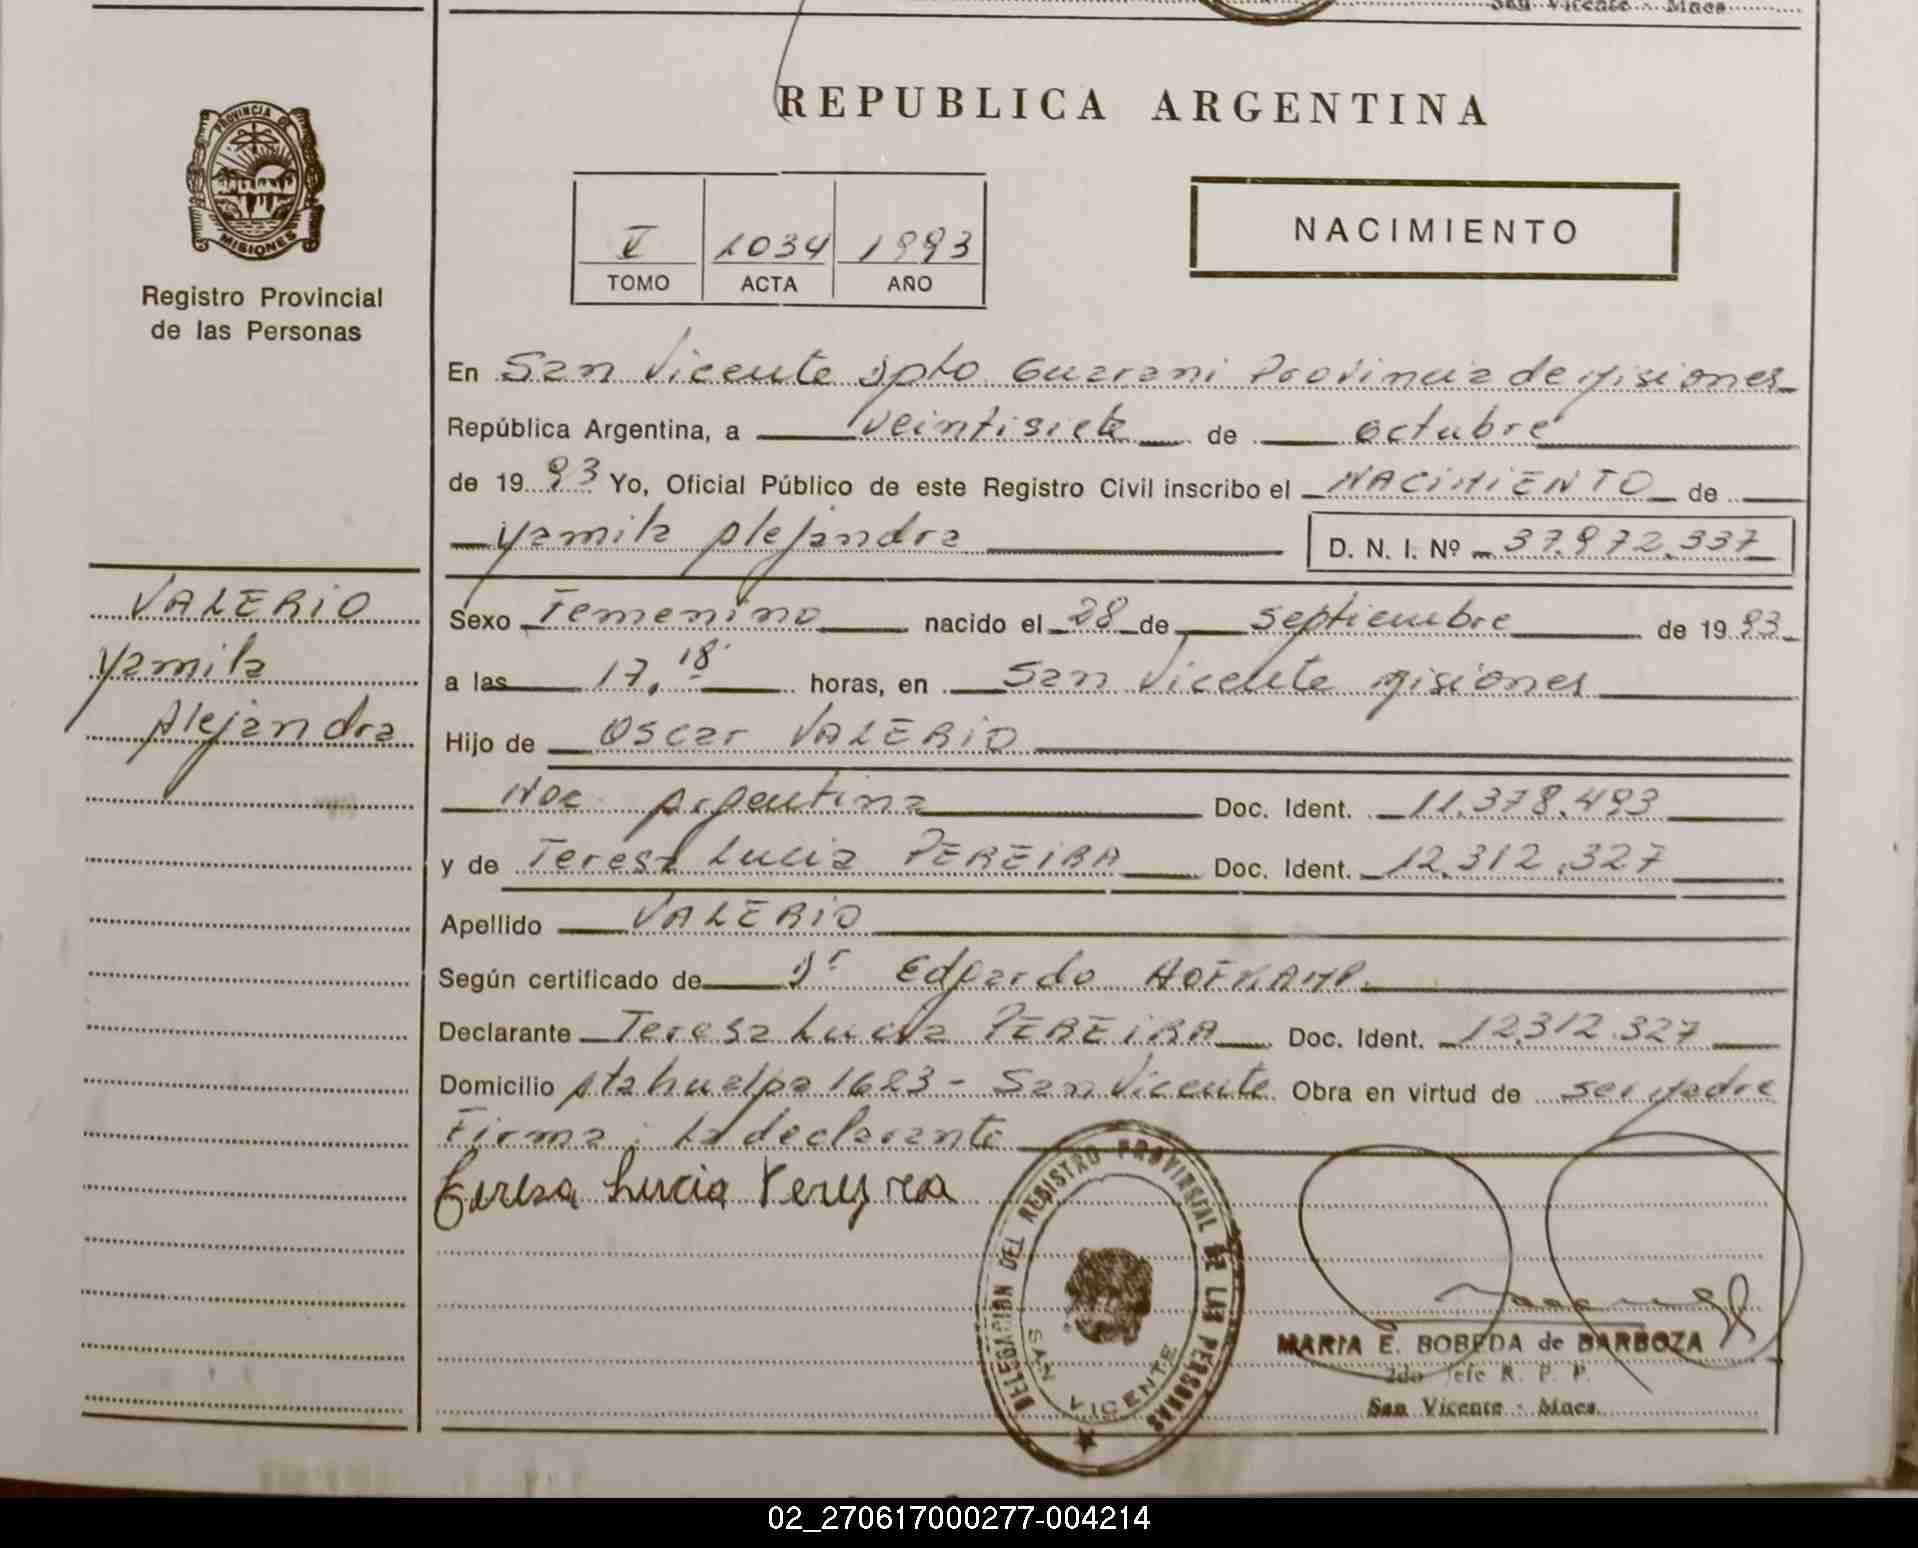 San Vicente - Mnes
PROVINCIA DE
MISIONES
Registro Provincial
de las Personas
REPUBLICA ARGENTINA
V 1034 1993
TOMO ACTA AÑO
NACIMIENTO
En San Vicente Dpto Guarani Provincia de Misiones
República Argentina, a veintisiete de octubre
de 1993 Yo, Oficial Público de este Registro Civil inscribo el NACIMIENTO de
Yamila Alejandra D. N. I. Nº 37.972.337
VALERIO
Yamila
Alejandra
Sexo Femenino nacido el 28 de septiembre de 1993
a las 17,18 horas, en San Vicente Misiones
Hijo de Oscar VALERIO
Nac. Argentina Doc. Ident. 11.378.493
y de Teresa Lucia PEREIRA Doc. Ident. 12.312.327
Apellido VALERIO
Según certificado de Dr Edgardo HOFKAMP.
Declarante Teresa Lucia PEREIRA Doc. Ident. 12.312.327
Domicilio Atahualpa 1623 - San Vicente Obra en virtud de ser Madre
Firma: La declarante
Teresa Lucia Pereyra
DELEGACIÓN DEL REGISTRO PROVINCIAL DE LAS PERSONAS
SAN VICENTE
MARIA E. BOBEDA de BARBOZA
2do Jefe R. P. P.
San Vicente - Mnes.
02_270617000277-004214